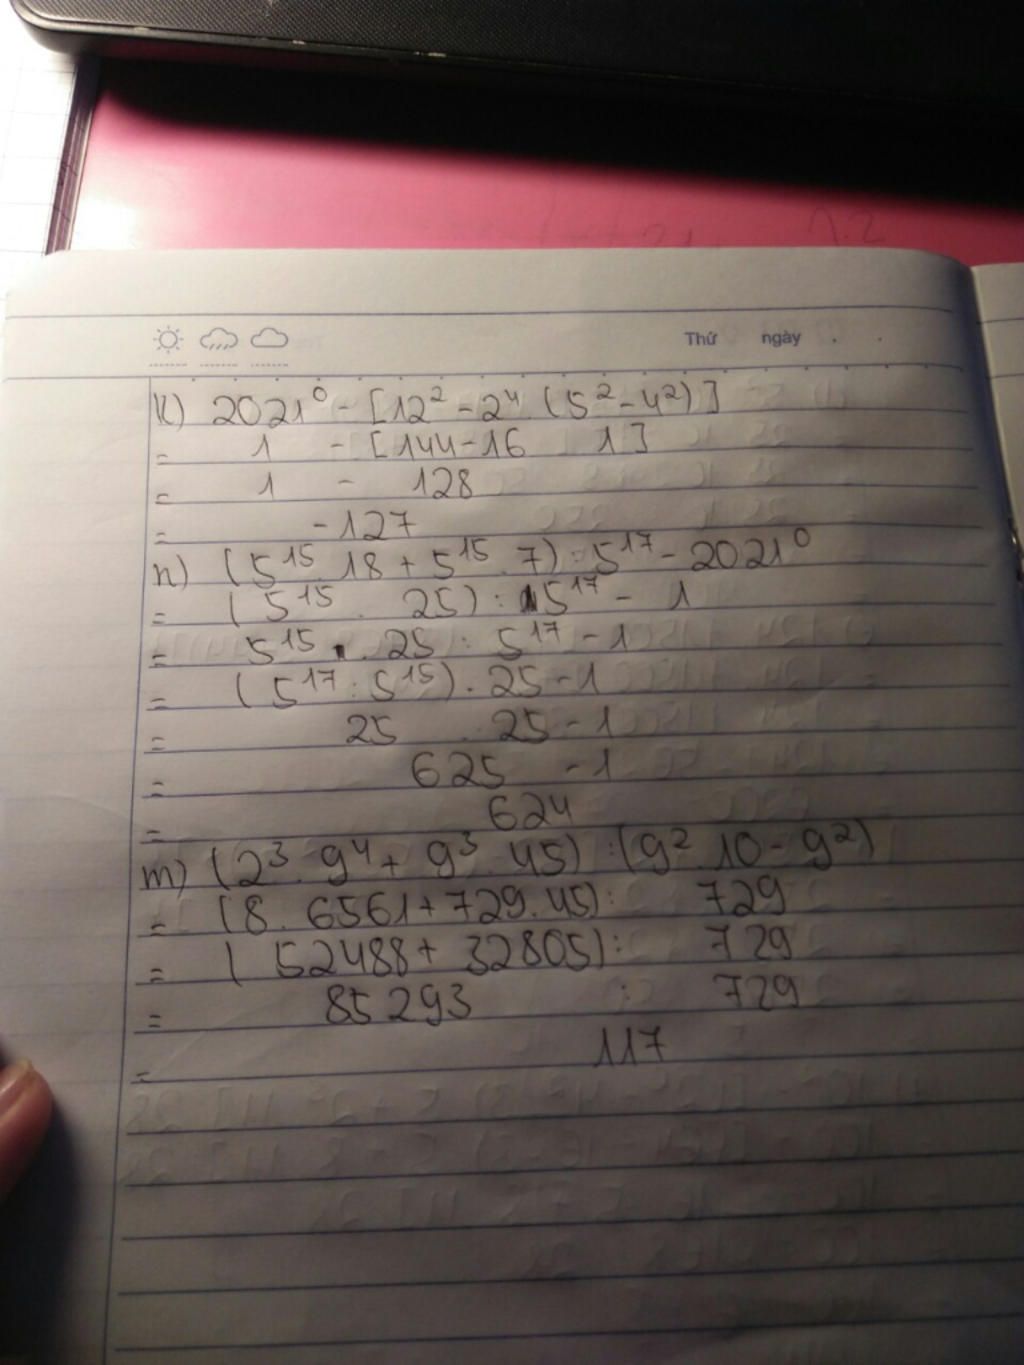 Thứ ngày
k) 2021⁰ - [12² - 2⁴ (5² - 4²)]
= 1 - [144 - 16 1]
= 1 - 128
= -127
n) (5¹⁵ . 18 + 5¹⁵ . 7) : 5¹⁷ - 2021⁰
= (5¹⁵ . 25) : 5¹⁷ - 1
= 5¹⁵ . 25 : 5¹⁷ - 1
= (5¹⁷ : 5¹⁵) . 25 - 1
= 25 . 25 - 1
= 625 - 1
= 624
m) (2³ . 9⁴ + 9³ . 45) : (9² . 10 - 9²)
= (8 . 6561 + 729 . 45) : 729
= (52488 + 32805) : 729
= 85293 : 729
= 117